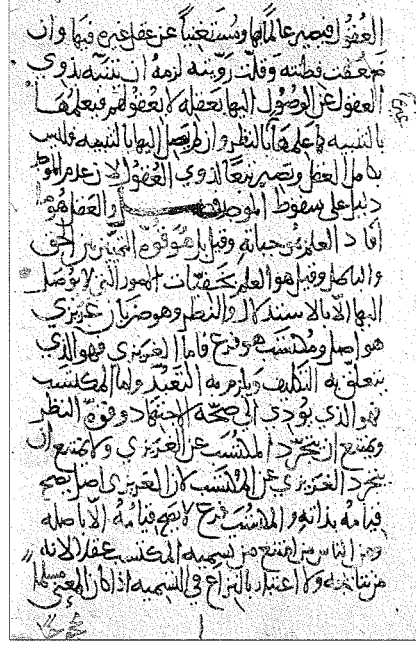 العقول فيصير عالما بها ومستغنيا عن عقل غيره فيها وان
ضعفت فطنته وقلت رويته لزمه ان يتنبه بذوي
العقول عن الوصول اليها بعقله لا بعقولهم فيعلمها
بالتنبيه كما علمها بالنظر وان لم يصل اليها بالتنبيه فليس
بكامل العقل ويصير تبعا لذوي العقول لان عدم
دليل على سقوط فصل والعقل هو ما
افاد العلم بموجباته وقيل بل هو قوة التمييز بين الحق
والباطل وقيل هو العلم بخفيات الامور التي لا يوصل
اليها الا بالاستدلال والنظر وهو ضربان غريزي
هو اصل ومكتسب هو فرع فاما الغريزي فهو الذي
يتعلق به التكليف ويلزم به التعبد واما المكتسب
فهو الذي يؤدي الى صحة الاجتهاد وقوة النظر
ويمتنع ان يتجرد المكتسب عن الغريزي ولا يمتنع ان
يتجرد الغريزي عن المكتسب لان الغريزي اصل يصح
قيامه بذاته والمكتسب فرع لا يصح قيامه الا باصله
ومن الناس من امتنع من تسميه المكتسب عقلا لانه
من نتائجه ولا اعتبار بالنزاع في التسميه اذا كان المعنى مسلما